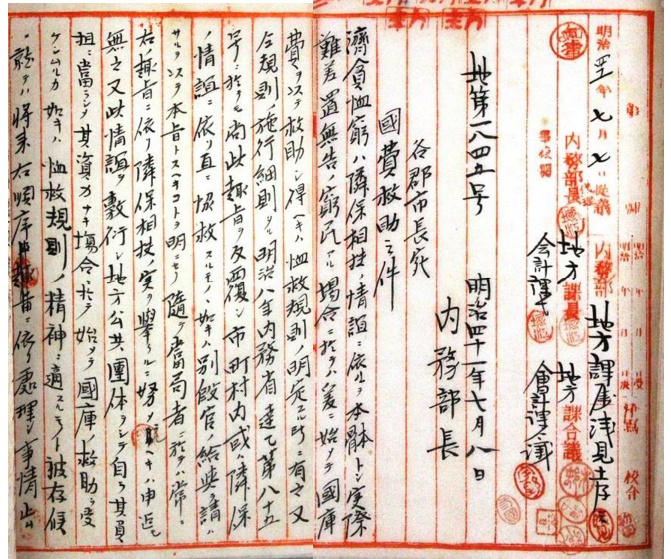 明治四十一年七月七日発議
内務部長
地方課長
地方課合議
会計課
地第一八四五号
明治四十一年七月八日
内務部長
各郡市長宛
國費救助之件
濟貧恤窮ハ隣保相扶ノ情誼ニ依ルヲ本体トシ実際
難差置無告ノ窮民アル場合ニ於テハ爰ニ始メテ國庫
費ヲ以テ救助シ得ヘキハ恤救規則ノ明定スル所ニ有之又
仝規則ノ施行細則タル明治八年内務省達乙第八十五
号ニ於テモ尚此趣旨ヲ反覆シ市町村内或ハ隣保
ノ情誼ニ依リ互ニ協救スルモノヽ如キハ別段官ノ給與ヲ請ハ
サルヲ以テ本旨トスヘキコトヲ明ニセリ随テ當局者ニ於テハ常ニ
右趣旨ニ依リ隣保相扶ノ実ヲ挙クルニ努メラルヘキハ申迄モ
無之又此情誼ヲ敷衍シ地方公共團体ヲシテ自ラ其負
担ニ當ラシメ其資力ナキ場合ニ於テ始メテ國庫ノ救助ヲ受
ケシムルカ如キハ恤救規則ノ精神ニ適スルモノト被存候
就テハ将来右順序趣旨ニ依リ処理シ事情止